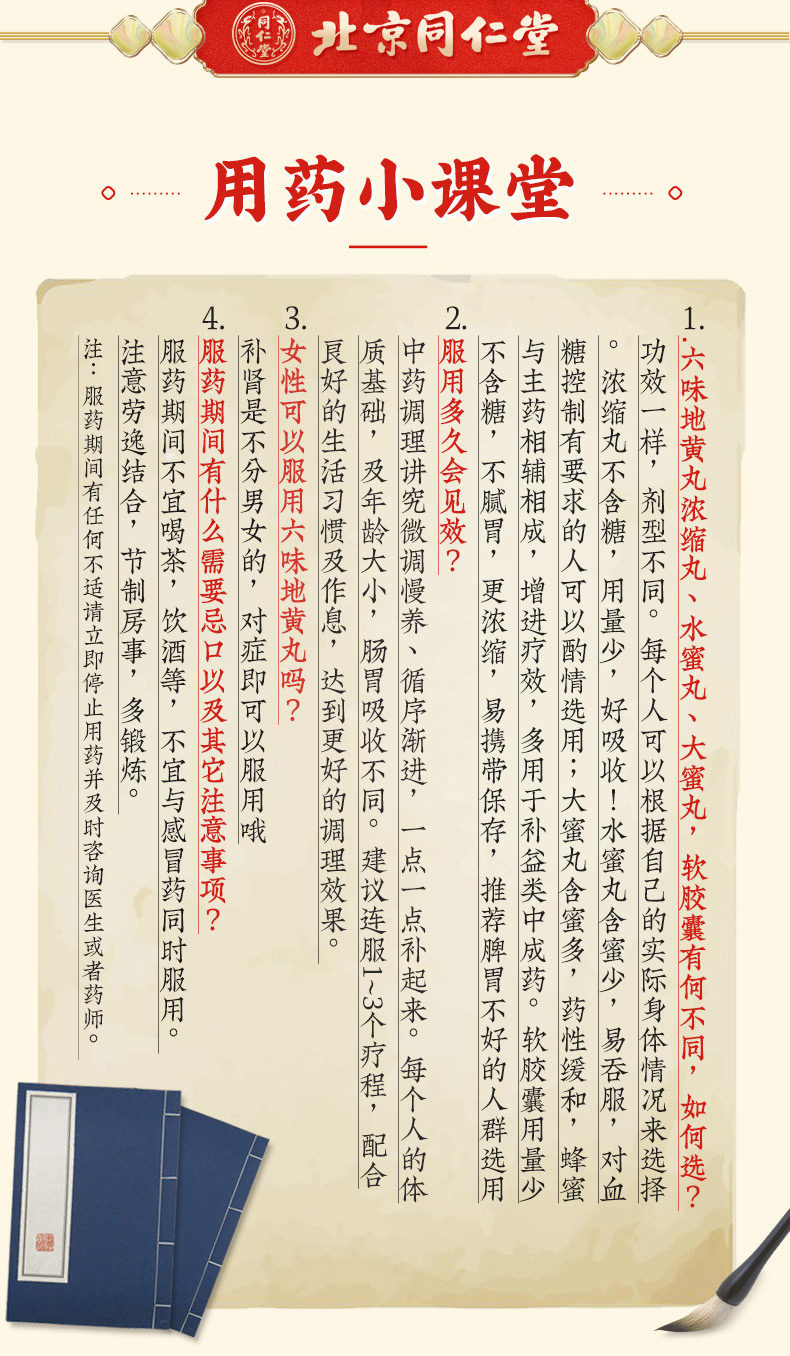 同仁堂
北京同仁堂
用药小课堂
1.
六味地黄丸浓缩丸、水蜜丸、大蜜丸，软胶囊有何不同，如何选？
功效一样，剂型不同。每个人可以根据自己的实际身体情况来选择
。浓缩丸不含糖，用量少，好吸收！水蜜丸含蜜少，易吞服，对血
糖控制有要求的人可以酌情选用；大蜜丸含蜜多，药性缓和，蜂蜜
与主药相辅相成，增进疗效，多用于补益类中成药。软胶囊用量少
不含糖，不腻胃，更浓缩，易携带保存，推荐脾胃不好的人群选用
2.
服用多久会见效？
中药调理讲究微调慢养、循序渐进，一点一点补起来。每个人的体
质基础，及年龄大小，肠胃吸收不同。建议连服1~3个疗程，配合
良好的生活习惯及作息，达到更好的调理效果。
3.
女性可以服用六味地黄丸吗？
补肾是不分男女的，对症即可以服用哦
4.
服药期间有什么需要忌口以及其它注意事项？
服药期间不宜喝茶，饮酒等，不宜与感冒药同时服用。
注意劳逸结合，节制房事，多锻炼。
注：服药期间有任何不适请立即停止用药并及时咨询医生或者药师。